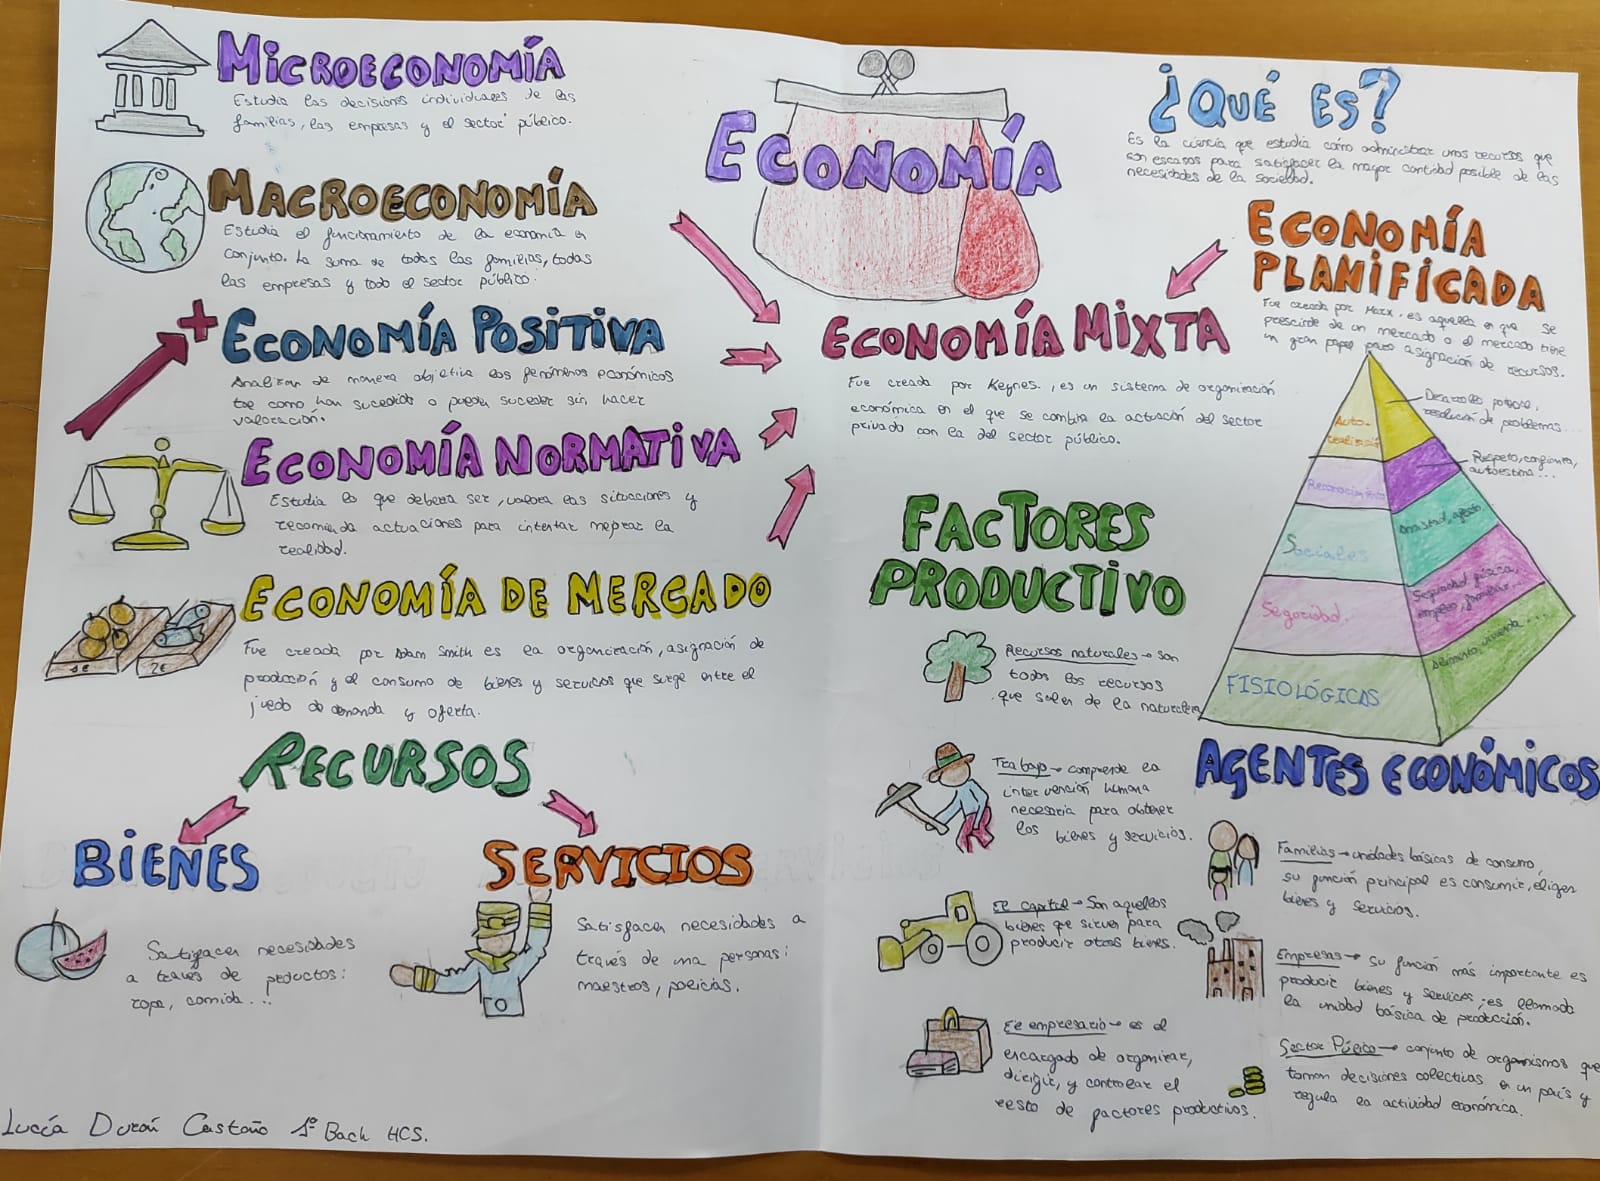 MICROECONOMÍA
Estudia las decisiones individuales de las
familias, las empresas y el sector público.
MACROECONOMÍA
Estudia el funcionamiento de la economía en
conjunto. La suma de todas las familias, todas
las empresas y todo el sector público.
+ ECONOMÍA POSITIVA
Analizan de manera objetiva los fenómenos económicos
tal como han sucedido o pueden suceder sin hacer
valoración.
ECONOMÍA NORMATIVA
Estudia lo que debería ser, valora las situaciones y
recomienda actuaciones para intentar mejorar la
realidad.
ECONOMÍA DE MERCADO
1€ 2€
Fue creada por Adam Smith es la organización, asignación de
producción y el consumo de bienes y servicios que surge entre el
juego de demanda y oferta.
RECURSOS
BIENES
Satisfacen necesidades
a través de productos:
ropa, comida...
SERVICIOS
Satisfacen necesidades a
través de una personas:
maestros, policías.
Lucía Durán Castaño 1º Bach HCS.
ECONOMÍA
¿QUÉ ES?
Es la ciencia que estudia cómo administrar unos recursos que
son escasos para satisfacer la mayor cantidad posible de las
necesidades de la sociedad.
ECONOMÍA
PLANIFICADA
Fue creada por Marx, es aquella en que se
prescinde de un mercado o el mercado tiene
un gran papel para asignación de recursos.
ECONOMÍA MIXTA
Fue creada por Keynes, es un sistema de organización
económica en el que se combina la actuación del sector
privado con la del sector público.
Auto-
realización
Desarrollo potencial,
resolución de problemas...
Reconocimiento
Respeto, confianza,
autoestima...
Sociales
Amistad, afecto,
Seguridad.
Seguridad física,
empleo, familiar...
FISIOLÓGICAS
Alimento, vivienda...
FACTORES
PRODUCTIVO
Recursos naturales → son
todos los recursos
que salen de la naturaleza
Trabajo → comprende la
intervención humana
necesaria para obtener
los bienes y servicios.
El capital → Son aquellos
bienes que sirven para
producir otros bienes.
El empresario → es el
encargado de organizar,
dirigir, y controlar el
resto de factores productivos.
AGENTES ECONÓMICOS
Familias → unidades básicas de consumo,
su función principal es consumir, eligen
bienes y servicios.
Empresas → su función más importante es
producir bienes y servicios, es llamada
la unidad básica de producción.
Sector Público → conjunto de organismos que
toman decisiones colectivas en un país y
regula la actividad económica.